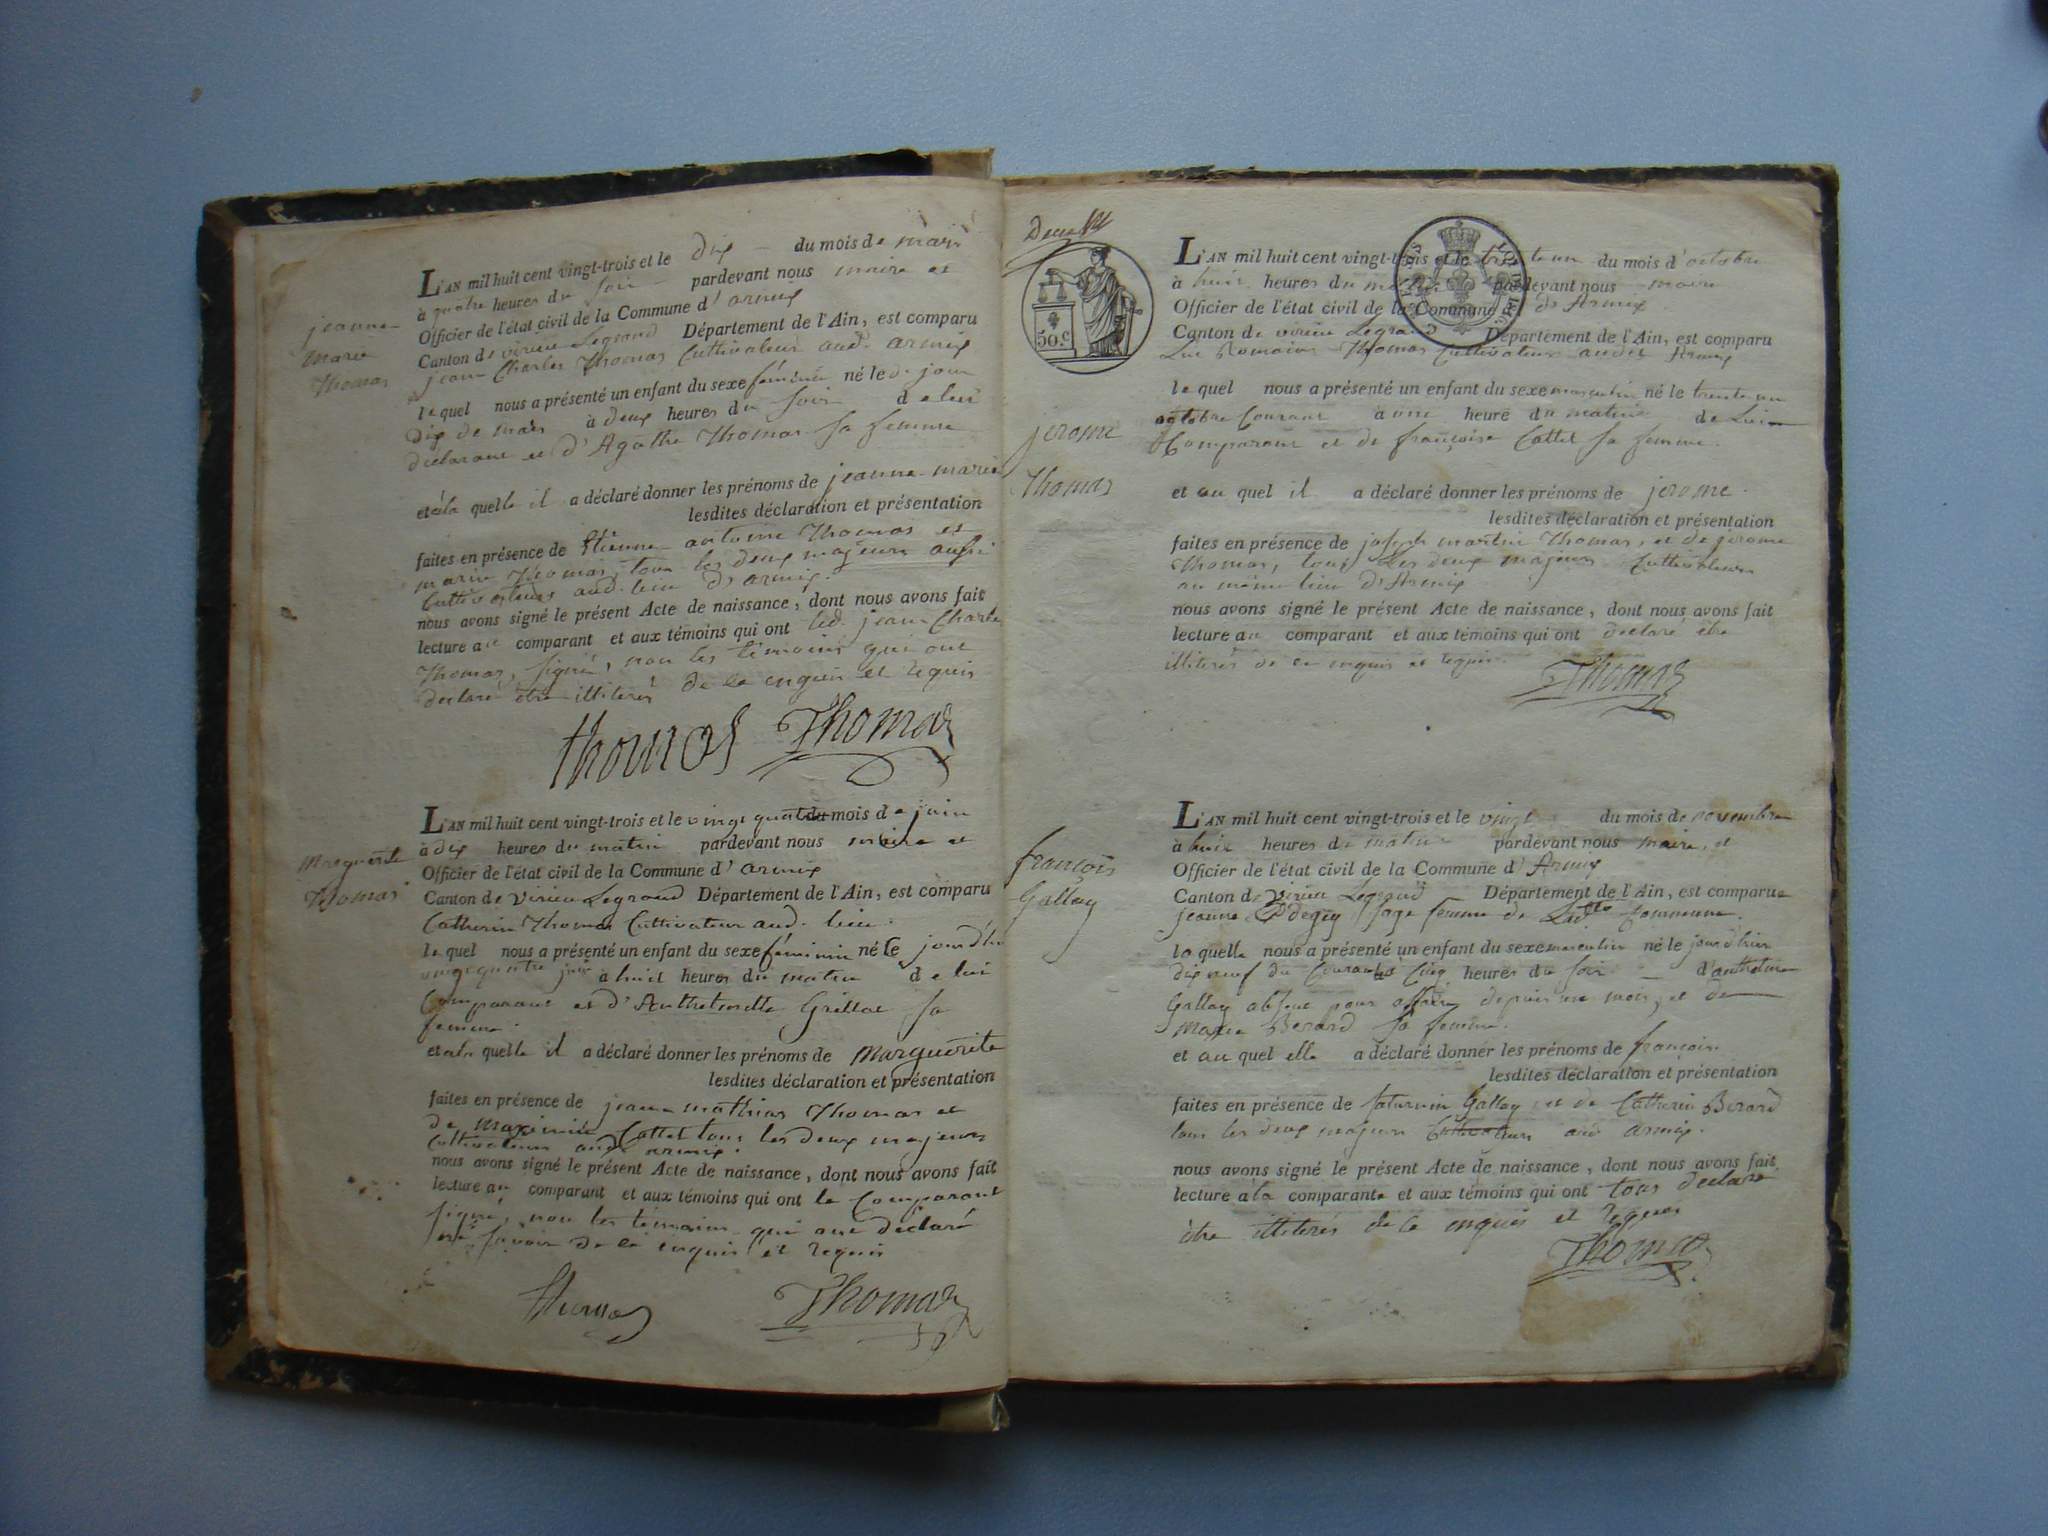 jeanne
marie
Thomas
L'AN mil huit cent vingt-trois et le dix du mois de mars
à quatre heures du soir pardevant nous maire et
Officier de l'état civil de la Commune d'armix
Canton de virieu Legrand Département de l'Ain, est comparu
jean Charles Thomas Cultivateur aud. armix
le quel nous a présenté un enfant du sexe féminin né le d. jour
dix de mars à deux heures du soir de lui
déclarant et d'Agathe Thomas sa femme
et à la quelle il a déclaré donner les prénoms de jeanne-marie
lesdites déclaration et présentation
faites en présence de Etienne antoine Thomas et
marin Thomas, tous les deux majeurs aussi
Cultivateurs aud. lieu d'armix.
nous avons signé le présent Acte de naissance, dont nous avons fait
lecture au comparant et aux témoins qui ont led. jean Charle
Thomas, signé, non les témoins qui ont
déclaré être illiterés de ce enquis et requis
thomas Thomas
Marguerite
Thomas
L'AN mil huit cent vingt-trois et le vingt quat du mois de juin
à dix heures du matin pardevant nous maire et
Officier de l'état civil de la Commune d'armix
Canton de virieu Legrand Département de l'Ain, est comparu
Catherin Thomas Cultivateur aud. lieu.
le quel nous a présenté un enfant du sexe féminin né le jourd'hui
vingt quatre juin à huit heures du matin de lui
Comparant et d'Anthelmette Grillat sa
femme.
et à la quelle il a déclaré donner les prénoms de Marguerite
lesdites déclaration et présentation
faites en présence de jean mathias Thomas et
de maximin Cattet tous les deux majeurs
Cultivateurs aud. armix.
nous avons signé le présent Acte de naissance, dont nous avons fait
lecture au comparant et aux témoins qui ont le Comparant
signé, non les témoins qui ont déclaré
savoir de ce enquis et requis
thomas Thomas
50.c
jerome
Thomas
L'AN mil huit cent vingt-trois et le trente un du mois d'octobre
à huit heures du matin pardevant nous maire
Officier de l'état civil de la Commune d'Armix
Canton de virieu Legrand Département de l'Ain, est comparu
Luc Romain Thomas Cultivateur audit Armix
le quel nous a présenté un enfant du sexe masculin né le trente un
octobre Courant à une heure du matin de Lui
Comparant et de françoise Cattet sa femme.
et au quel il a déclaré donner les prénoms de jerome.
lesdites déclaration et présentation
faites en présence de joseph martin Thomas, et de jerome
Thomas, tous les deux majeurs Cultivateurs
au même lieu d'Armix
nous avons signé le présent Acte de naissance, dont nous avons fait
lecture au comparant et aux témoins qui ont déclaré être
illiterés de ce enquis et requis.
Thomas
françois
Gallay
L'AN mil huit cent vingt-trois et le vingt du mois de novembre
à huit heures du matin pardevant nous maire, et
Officier de l'état civil de la Commune d'Armix
Canton de Virieu Legrand Département de l'Ain, est comparue
jeanne sage femme de Ladte Commune.
la quelle nous a présenté un enfant du sexe masculin né le jour d'hier
dix neuf du Courant à Cinq heures du soir d'anthelme
Gallay absent pour affaires depuis un mois, et de
Marie Berard sa femme.
et au quel elle a déclaré donner les prénoms de françois
lesdites déclaration et présentation
faites en présence de saturnin Gallay et de Catherin Berard
tous les deux majeurs Cultivateurs aud armix.
nous avons signé le présent Acte de naissance, dont nous avons fait
lecture à la comparante et aux témoins qui ont tous déclaré
être illiterés de ce enquis et requis
Thomas